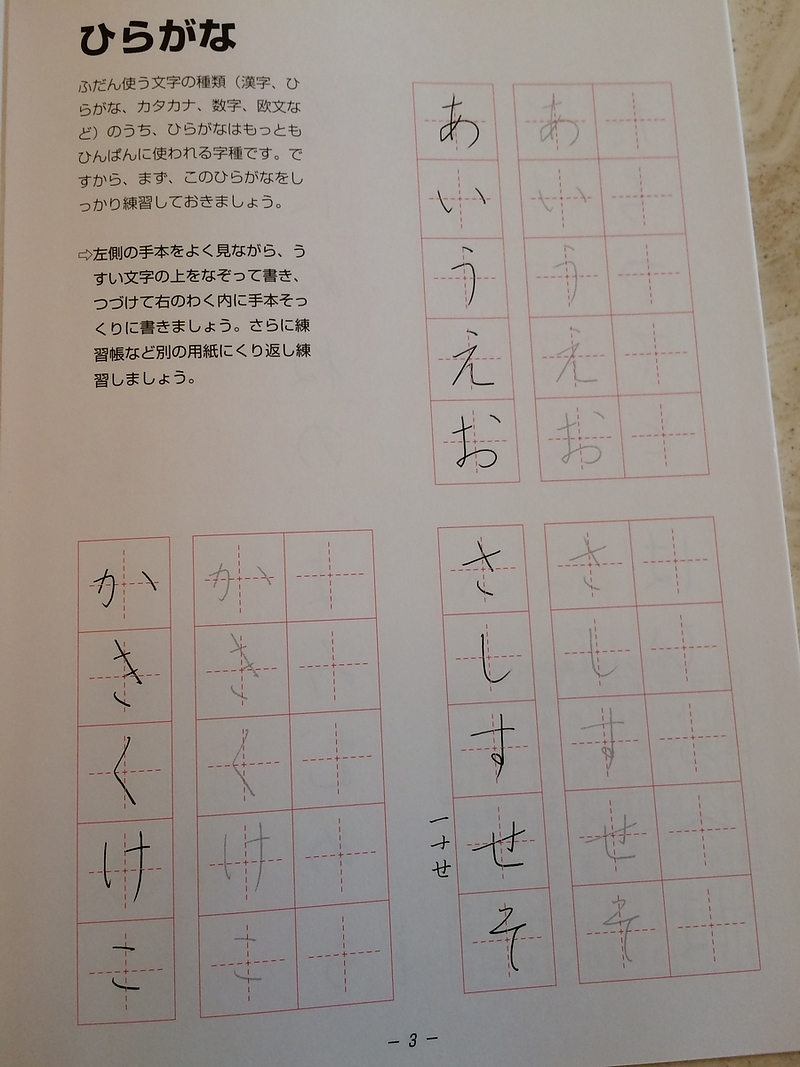 ひらがな
ふだん使う文字の種類（漢字、ひ
らがな、カタカナ、数字、欧文な
ど）のうち、ひらがなはもっとも
ひんぱんに使われる字種です。で
すから、まず、このひらがなをし
っかり練習しておきましょう。
⇨左側の手本をよく見ながら、う
すい文字の上をなぞって書き、
つづけて右のわく内に手本そっ
くりに書きましょう。さらに練
習帳など別の用紙にくり返し練
習しましょう。
あ あ
い い
う う
え え
お お
か か
き き
く く
け け
こ こ
さ さ
し し
す す
一 ナ せ
せ せ
そ そ
− 3 −